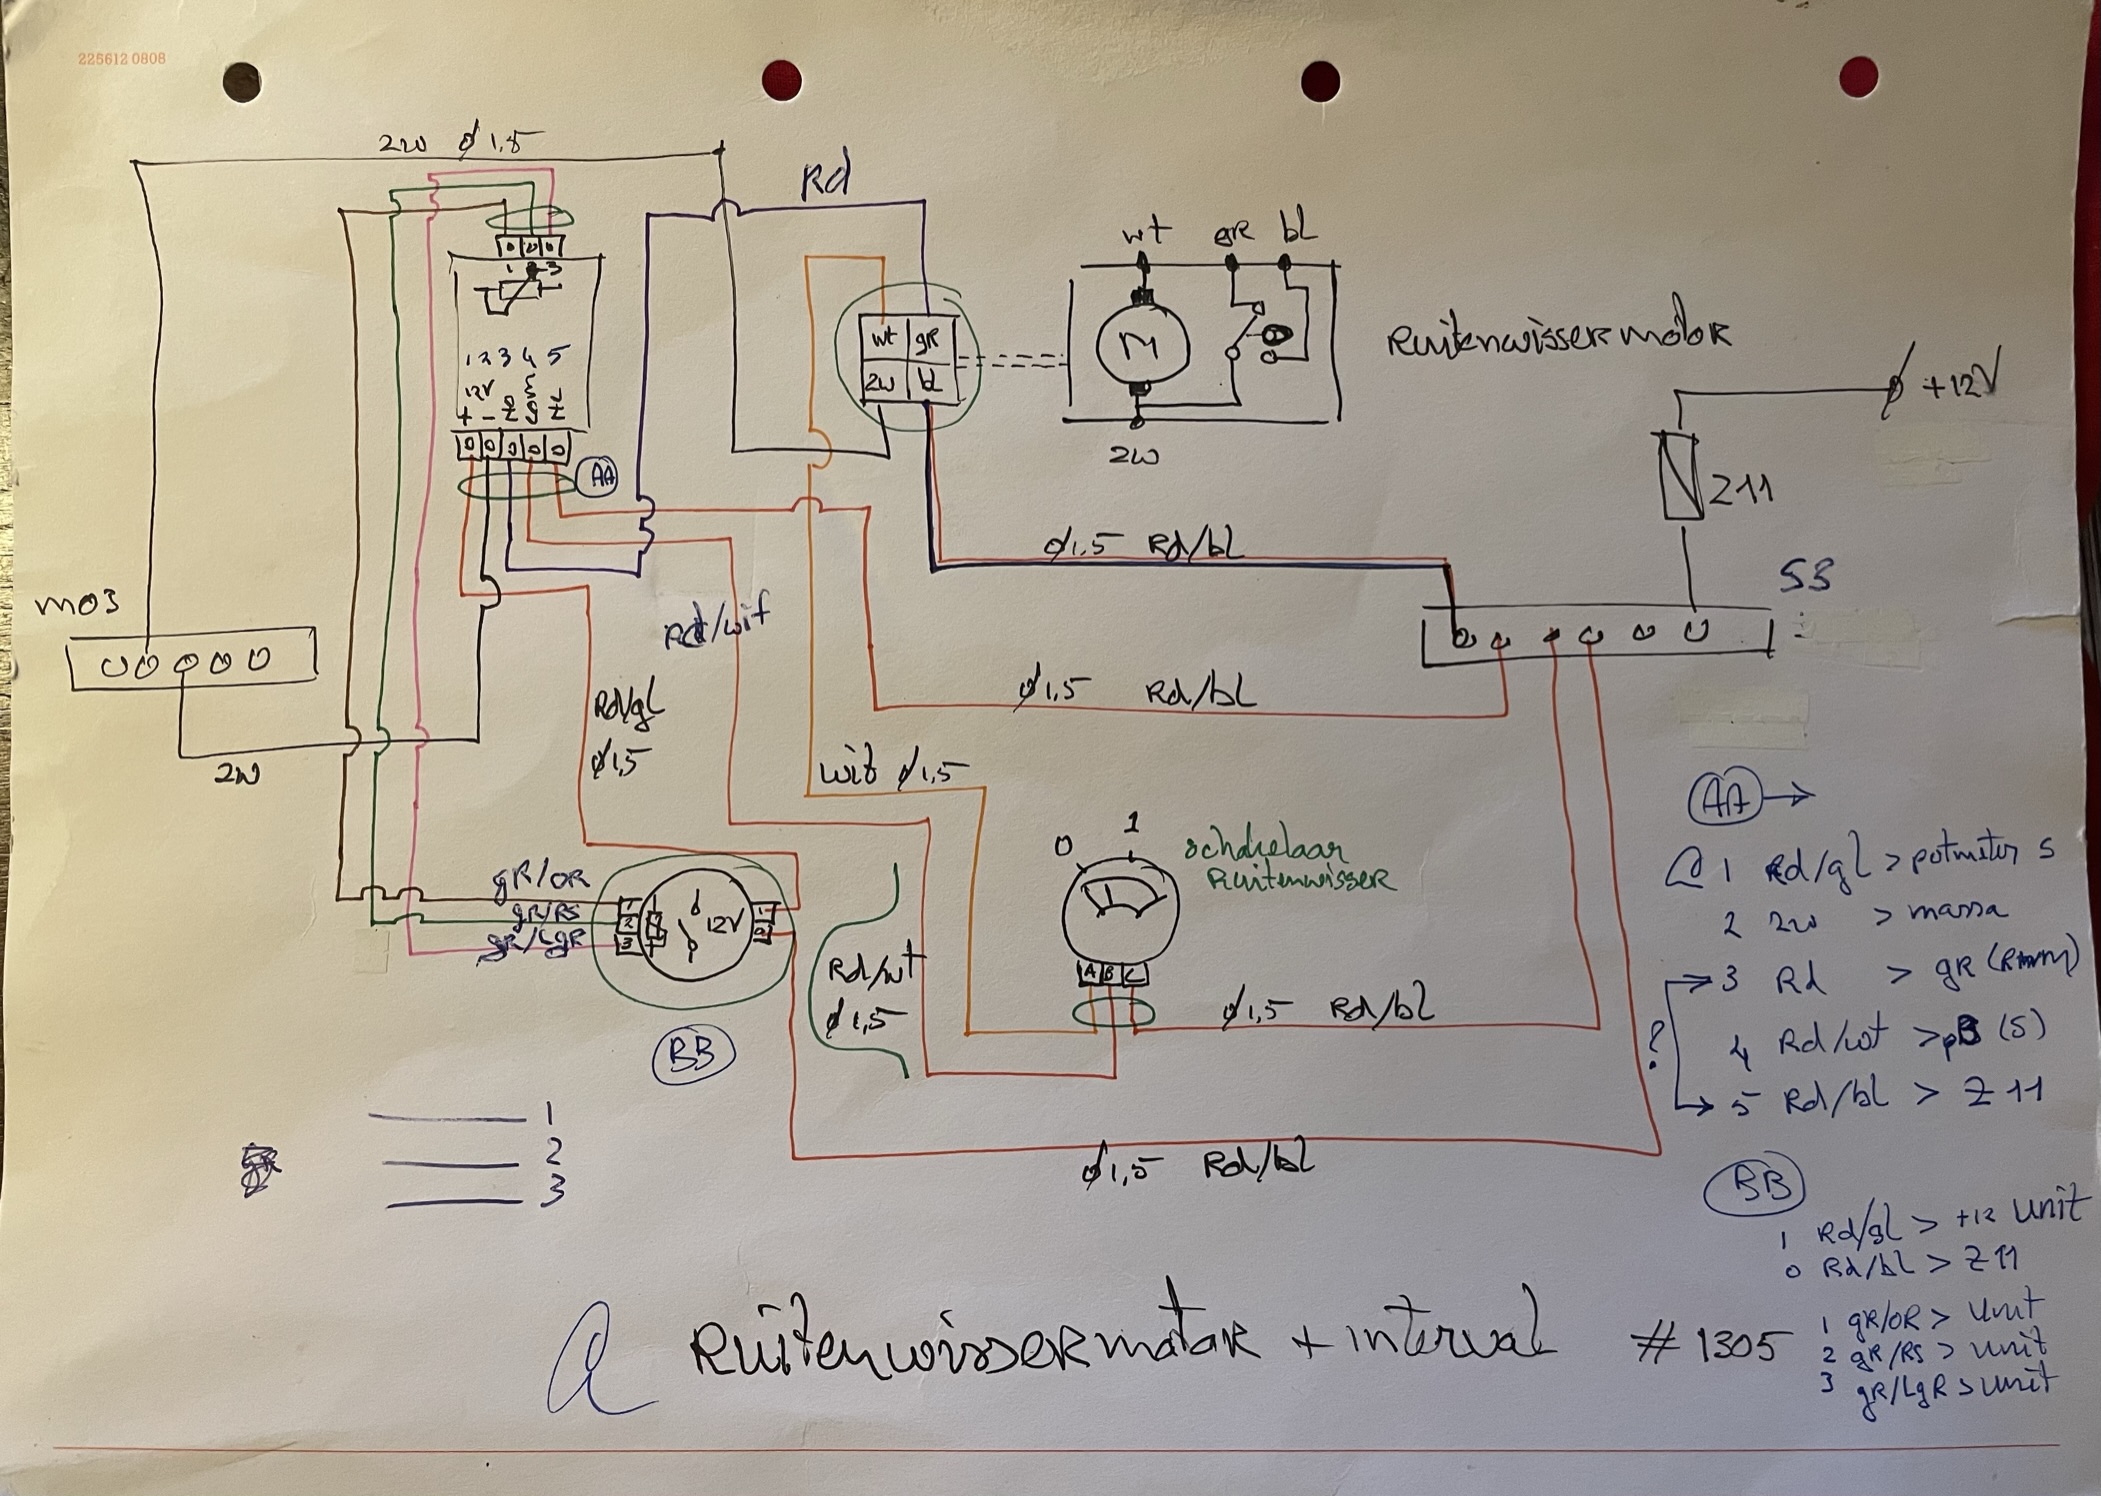 225612 0808
zw ø 1,5
Rd
wt gR bl
1 2 3
Ruitenwissermotor
wt gR
zw bl
M
1 2 3 4 5
12V
+ -
+12V
zw
AA
Z11
ø1,5 Rd/bl
S3
M03
Rd/wit
ø1,5 Rd/bl
Rd/gl
ø1,5
zw
wit ø1,5
AA →
0 1
schakelaar
Ruitenwisser
1 Rd/gl > potmeter S
2 zw > massa
gR/OR
gR/RS
gR/LgR
1
2
3
12V
1
0
3 Rd > gR (Rwm)
Rd/wt
ø1,5
A B C
ø1,5 Rd/bl
4 Rd/wt > B (S)
?
BB
5 Rd/bl > Z11
1
2
3
ø1,5 Rd/bl
BB
1 Rd/gl > +12 unit
0 Rd/bl > Z11
Ruitenwissermotor + interval # 1305
1 gR/OR > unit
2 gR/RS > unit
3 gR/LgR > unit